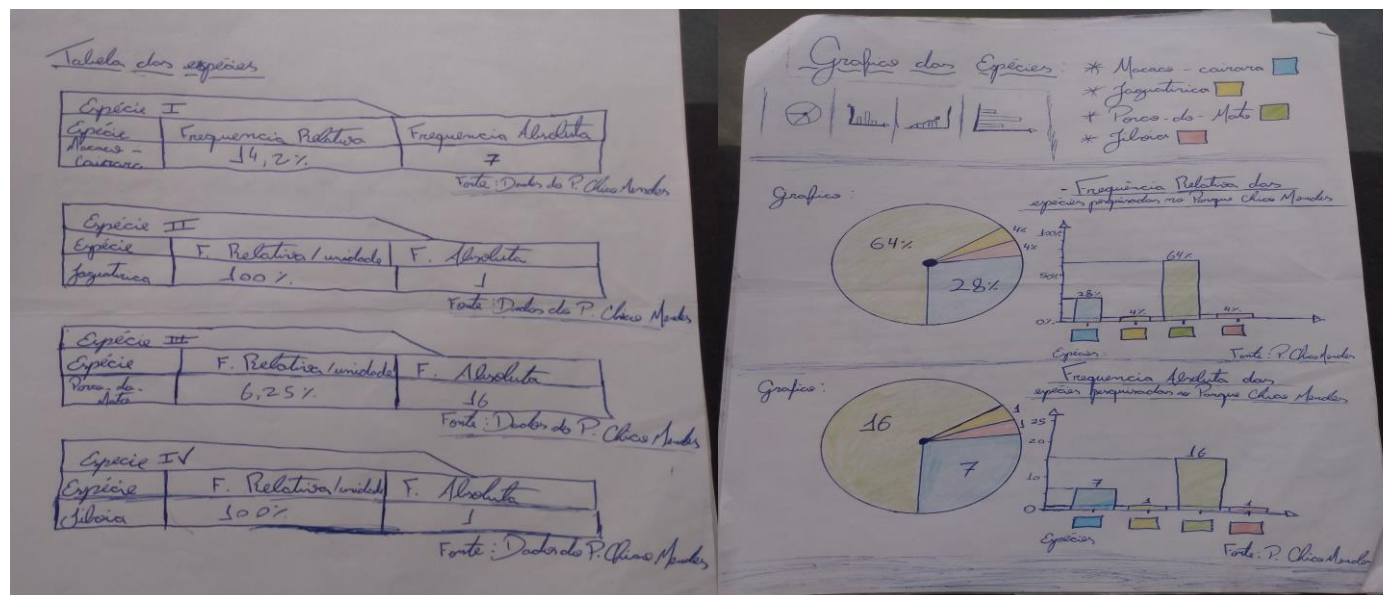 Tabela das espécies
Espécie I
Espécie Frequencia Relativa Frequencia Absoluta
Macaco - Cairara 14,2% 7
Fonte: Dados do P. Chico Mendes
Espécie II
Espécie F. Relativa/unidade F. Absoluta
Jaguatirica 100% 1
Fonte: Dados do P. Chico Mendes
Espécie III
Espécie F. Relativa/unidade F. Absoluta
Porco-do-Mato 6,25% 16
Fonte: Dados do P. Chico Mendes
Espécie IV
Espécie F. Relativa/unidade F. Absoluta
Jiboia 100% 1
Fonte: Dados do P. Chico Mendes
Grafico das Espécies:
* Macaco - cairara
* Jaguatirica
* Porco-do-Mato
* Jiboia
Grafico:
- Frequência Relativa das
espécies pesquisadas no Parque Chico Mendes
64%
4%
4%
28%
100%
50%
0%
28%
4%
64%
4%
Espécies:
Fonte: P. Chico Mendes
Grafico:
Frequencia Absoluta das
espécies pesquisadas no Parque Chico Mendes
16
1
1
7
25
20
10
0
7
1
16
1
Espécies
Fonte: P. Chico Mendes